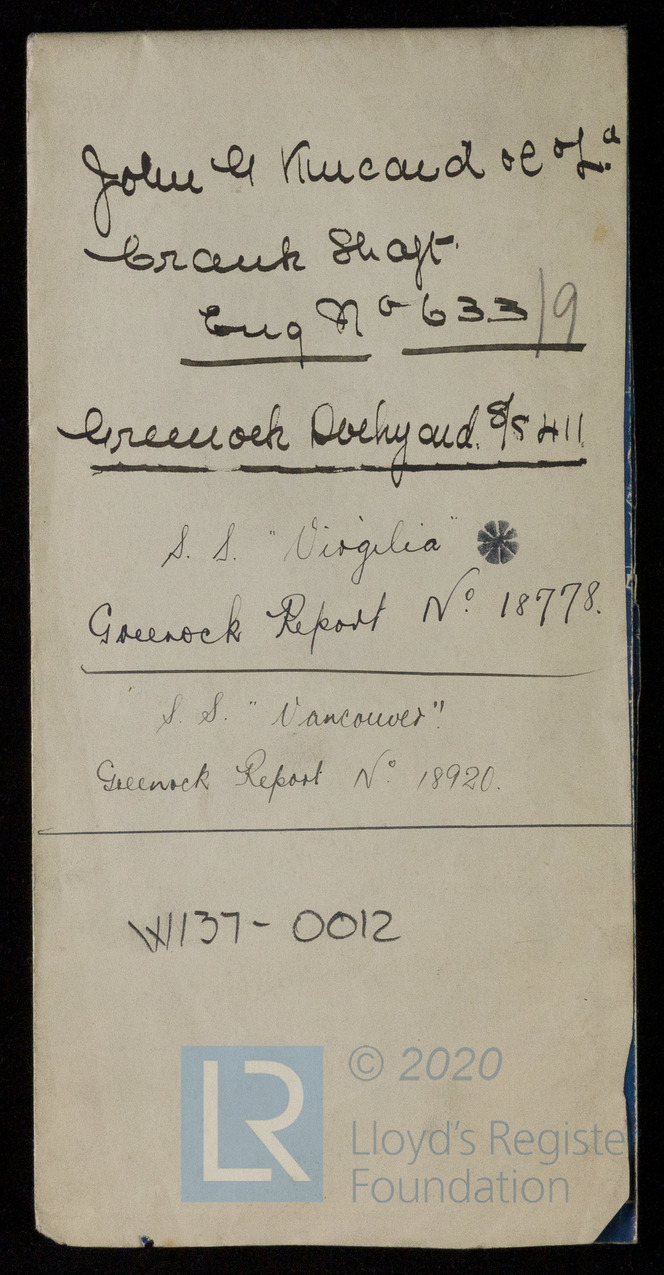 John G Kincaid & Co Ld.
Crank Shaft.
Eng No 633/9
Greenock Dockyard. S/S 411
S. S. "Virgilia"
Greenock Report No. 18778.
S. S. "Vancouver".
Greenock Report No. 18920.
W137-0012
LR
© 2020
Lloyd's Registe
Foundation